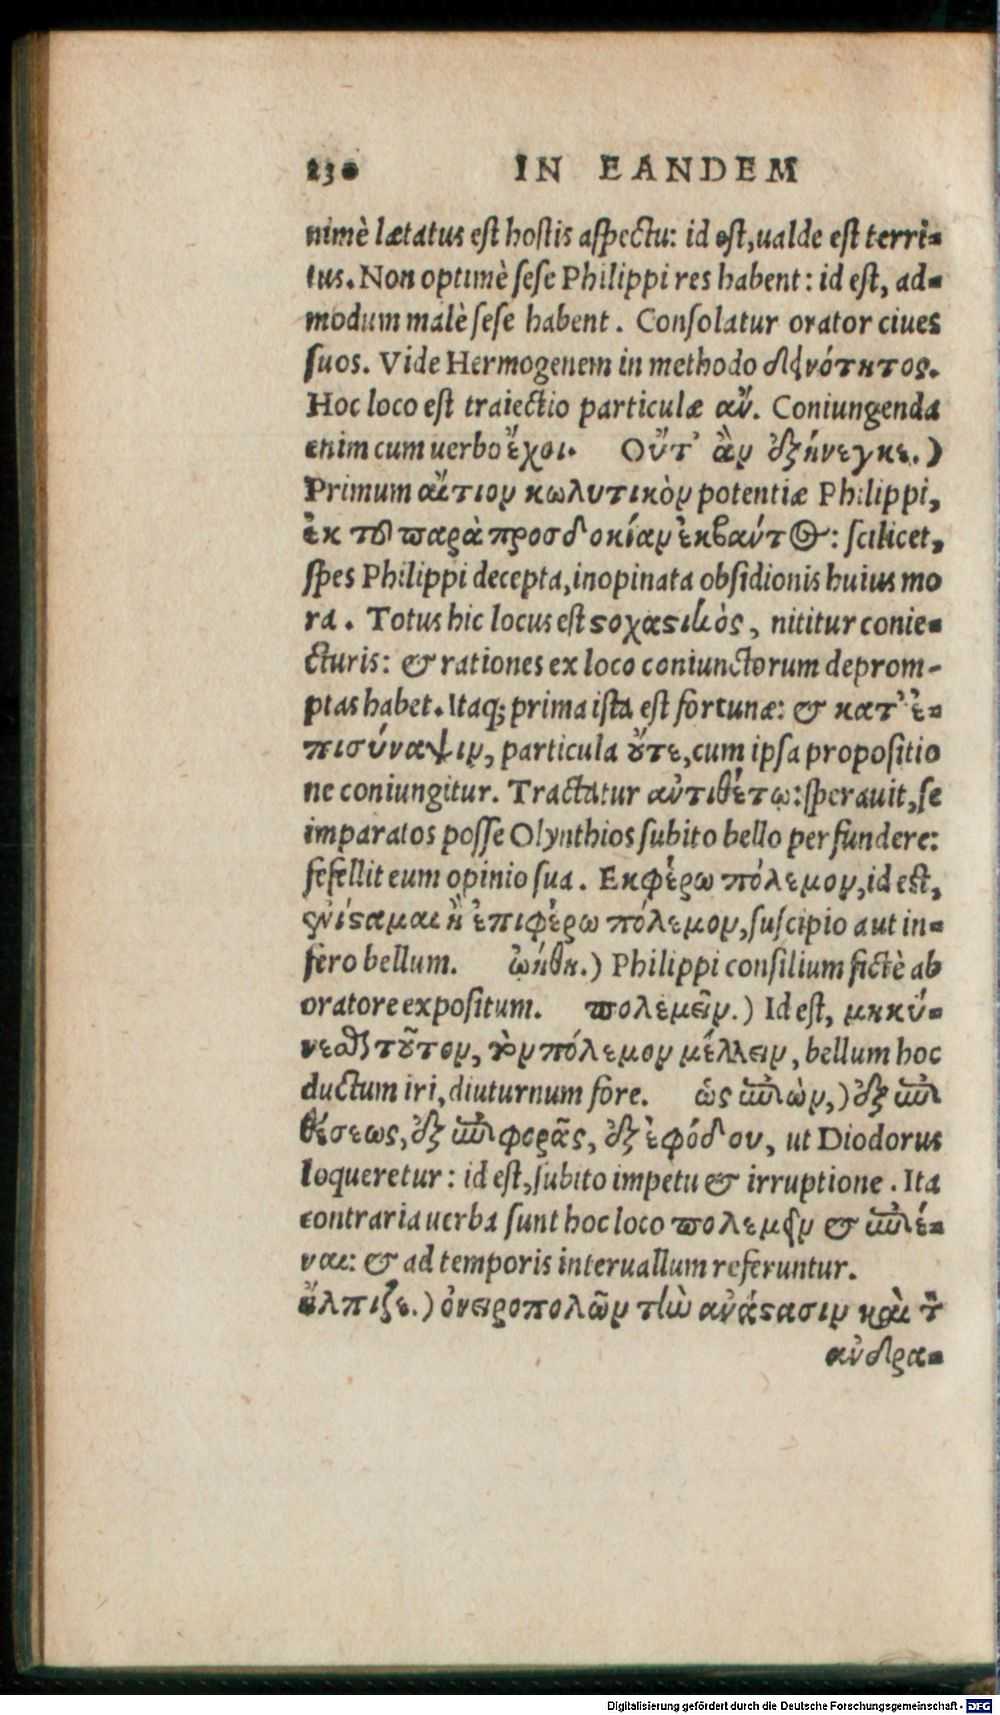 230 IN EANDEM
nimè lætatus est hostis aspectu: id est, ualde est terri-
tus. Non optimè sese Philippi res habent: id est, ad-
modum malè sese habent. Consolatur orator ciues
suos. Vide Hermogenem in methodo δεινότητος.
Hoc loco est traiectio particulæ ἄν. Coniungenda
enim cum uerbo ἔχοι. Οὔτ' ἂν ἐξήνεγκε.)
Primum αἴτιον κωλυτικὸν potentiæ Philippi,
ἐκ τοῦ παρὰ προσδοκίαν ἐκβάντος: scilicet,
spes Philippi decepta, inopinata obsidionis huius mo
ra. Totus hic locus est ϛοχαϛικὸς, nititur conie-
cturis: & rationes ex loco coniunctorum deprom-
ptas habet. Itaq; prima ista est fortunæ: & κατ' ἐ-
πισύναψιν, particula οὔτε, cum ipsa propositio
ne coniungitur. Tractatur ἀντιθέτῳ: sperauit, se
imparatos posse Olynthios subito bello perfundere:
fefellit eum opinio sua. Εκφέρω πόλεμον, id est,
ἐνίϛαμαι ἢ ἐπιφέρω πόλεμον, suscipio aut in-
fero bellum. ᾠήθη.) Philippi consilium fictè ab
oratore expositum. πολεμεῖν.) Id est, μηκύ-
νεσθαι τοῦτον, τὸν πόλεμον μέλλειν, bellum hoc
ductum iri, diuturnum fore. ὡς ἐπιὼν,) ἐξ ἐπι
θέσεως, ἐξ ἐπιφορᾶς, ἐξ ἐφόδου, ut Diodorus
loqueretur: id est, subito impetu & irruptione. Ita
contraria uerba sunt hoc loco πολεμεῖν & ἐπιέ-
ναι: & ad temporis interuallum referuntur.
ἤλπιζε.) ὀνειροπολῶν τὴν ἀνάϛασιν καὶ τὸν
ἀνδρα-
Digitalisierung gefördert durch die Deutsche Forschungsgemeinschaft - DFG